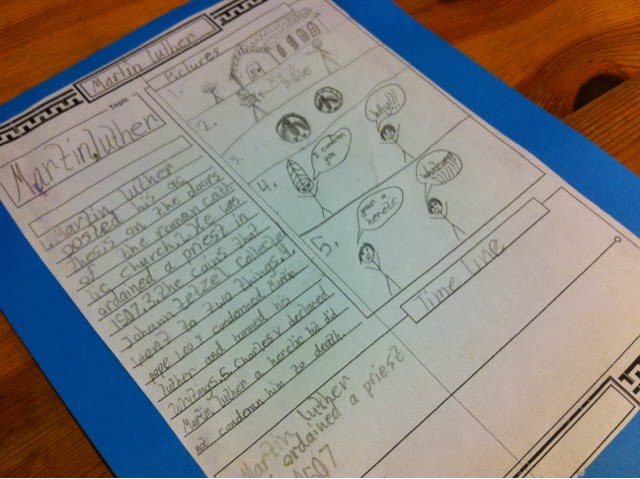 Martin luther
Topic
Martin luther
1. Martin luther
posted his 95
Thesis on the doors
of the roman cath-
lic church, He was
ordained a priest in
1507, 2. The coins that
Johann Tetzel collected
went to two things, 4.
pope Leo X condemned Martin
luther and banned his
writings, 5. Charles V declared
Martin luther a heretic bit did
not condemn him to death.
Pictures
1.
Bible
2.
3.
4.
I condemn
you
Why!!
5.
your a
heretic
Whatever
Time line
Martin luther
ordained a priest
1507